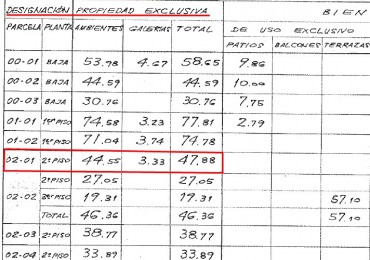 DESIGNACIÓN PROPIEDAD EXCLUSIVA BIEN
PARCELA PLANTA AMBIENTES GALERIAS TOTAL DE USO EXCLUSIVO
PATIOS BALCONES TERRAZAS
00-01 BAJA 53.98 4.67 58.65 9.86
00-02 BAJA 44.59 44.59 10.00
00-03 BAJA 30.76 30.76 7.75
01-01 1ºPISO 74.58 3.23 77.81 2.79
01-02 1ºPISO 71.04 3.74 74.78
02-01 2ºPISO 44.55 3.33 47.88
2ºPISO 27.05 27.05
02-02 19.31 19.31 57.10
TOTAL 46.36 46.36 57.10
02-03 2ºPISO 38.77 38.77
02-04 2ºPISO 33.89 33.89